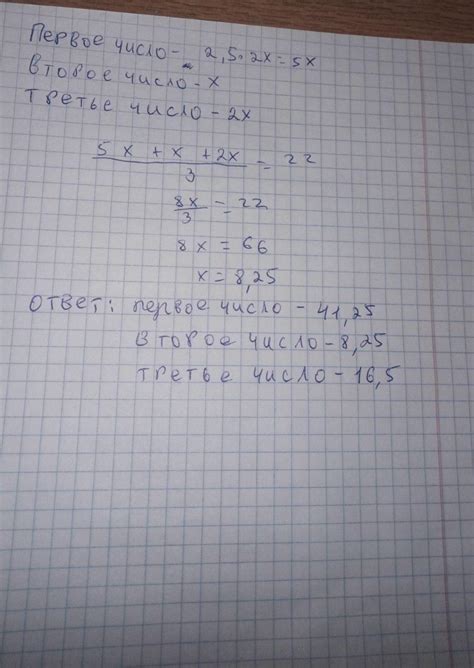 Первое число - 2,5·2x=5x
Второе число - x
Третье число - 2x
5x + x + 2x
3
= 22
8x
3
= 22
8x = 66
x = 8,25
Ответ: первое число - 41,25
второе число - 8,25
третье число - 16,5